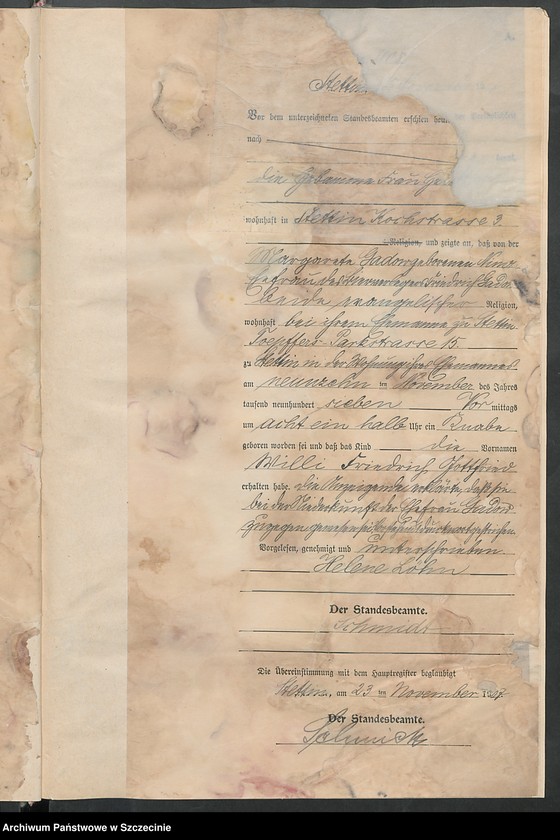 Stettin
Vor dem unterzeichneten Standesbeamten erschien
nach
die Hebamme Frau
wohnhaft in Stettin Kochstrasse 3.
Religion, und zeigte an, daß von der
Margarete geborenen
Ehefrau des Bierverlegers Friedrich
beide evangelischer Religion,
wohnhaft bei ihrem Ehemanne zu Stettin
Toepffers-Parkstrasse 15
zu Stettin in der Wohnung ihres Ehemannes
am neunzehn ten November des Jahres
tausend neunhundert sieben Vor mittags
um acht ein halb Uhr ein Knabe
geboren worden sei und daß das Kind die Vornamen
Willi Friedrich Gottfried
erhalten habe. Die Anzeigende erklärte, daß sie
bei der Niederkunft der Ehefrau
zugegen gewesen sei.
Vorgelesen, genehmigt und unterschrieben
Helene Löhn
Der Standesbeamte.
Schmidt
Die Übereinstimmung mit dem Hauptregister beglaubigt
Stettin, am 23 ten November 1907
Der Standesbeamte.
Archiwum Państwowe w Szczecinie